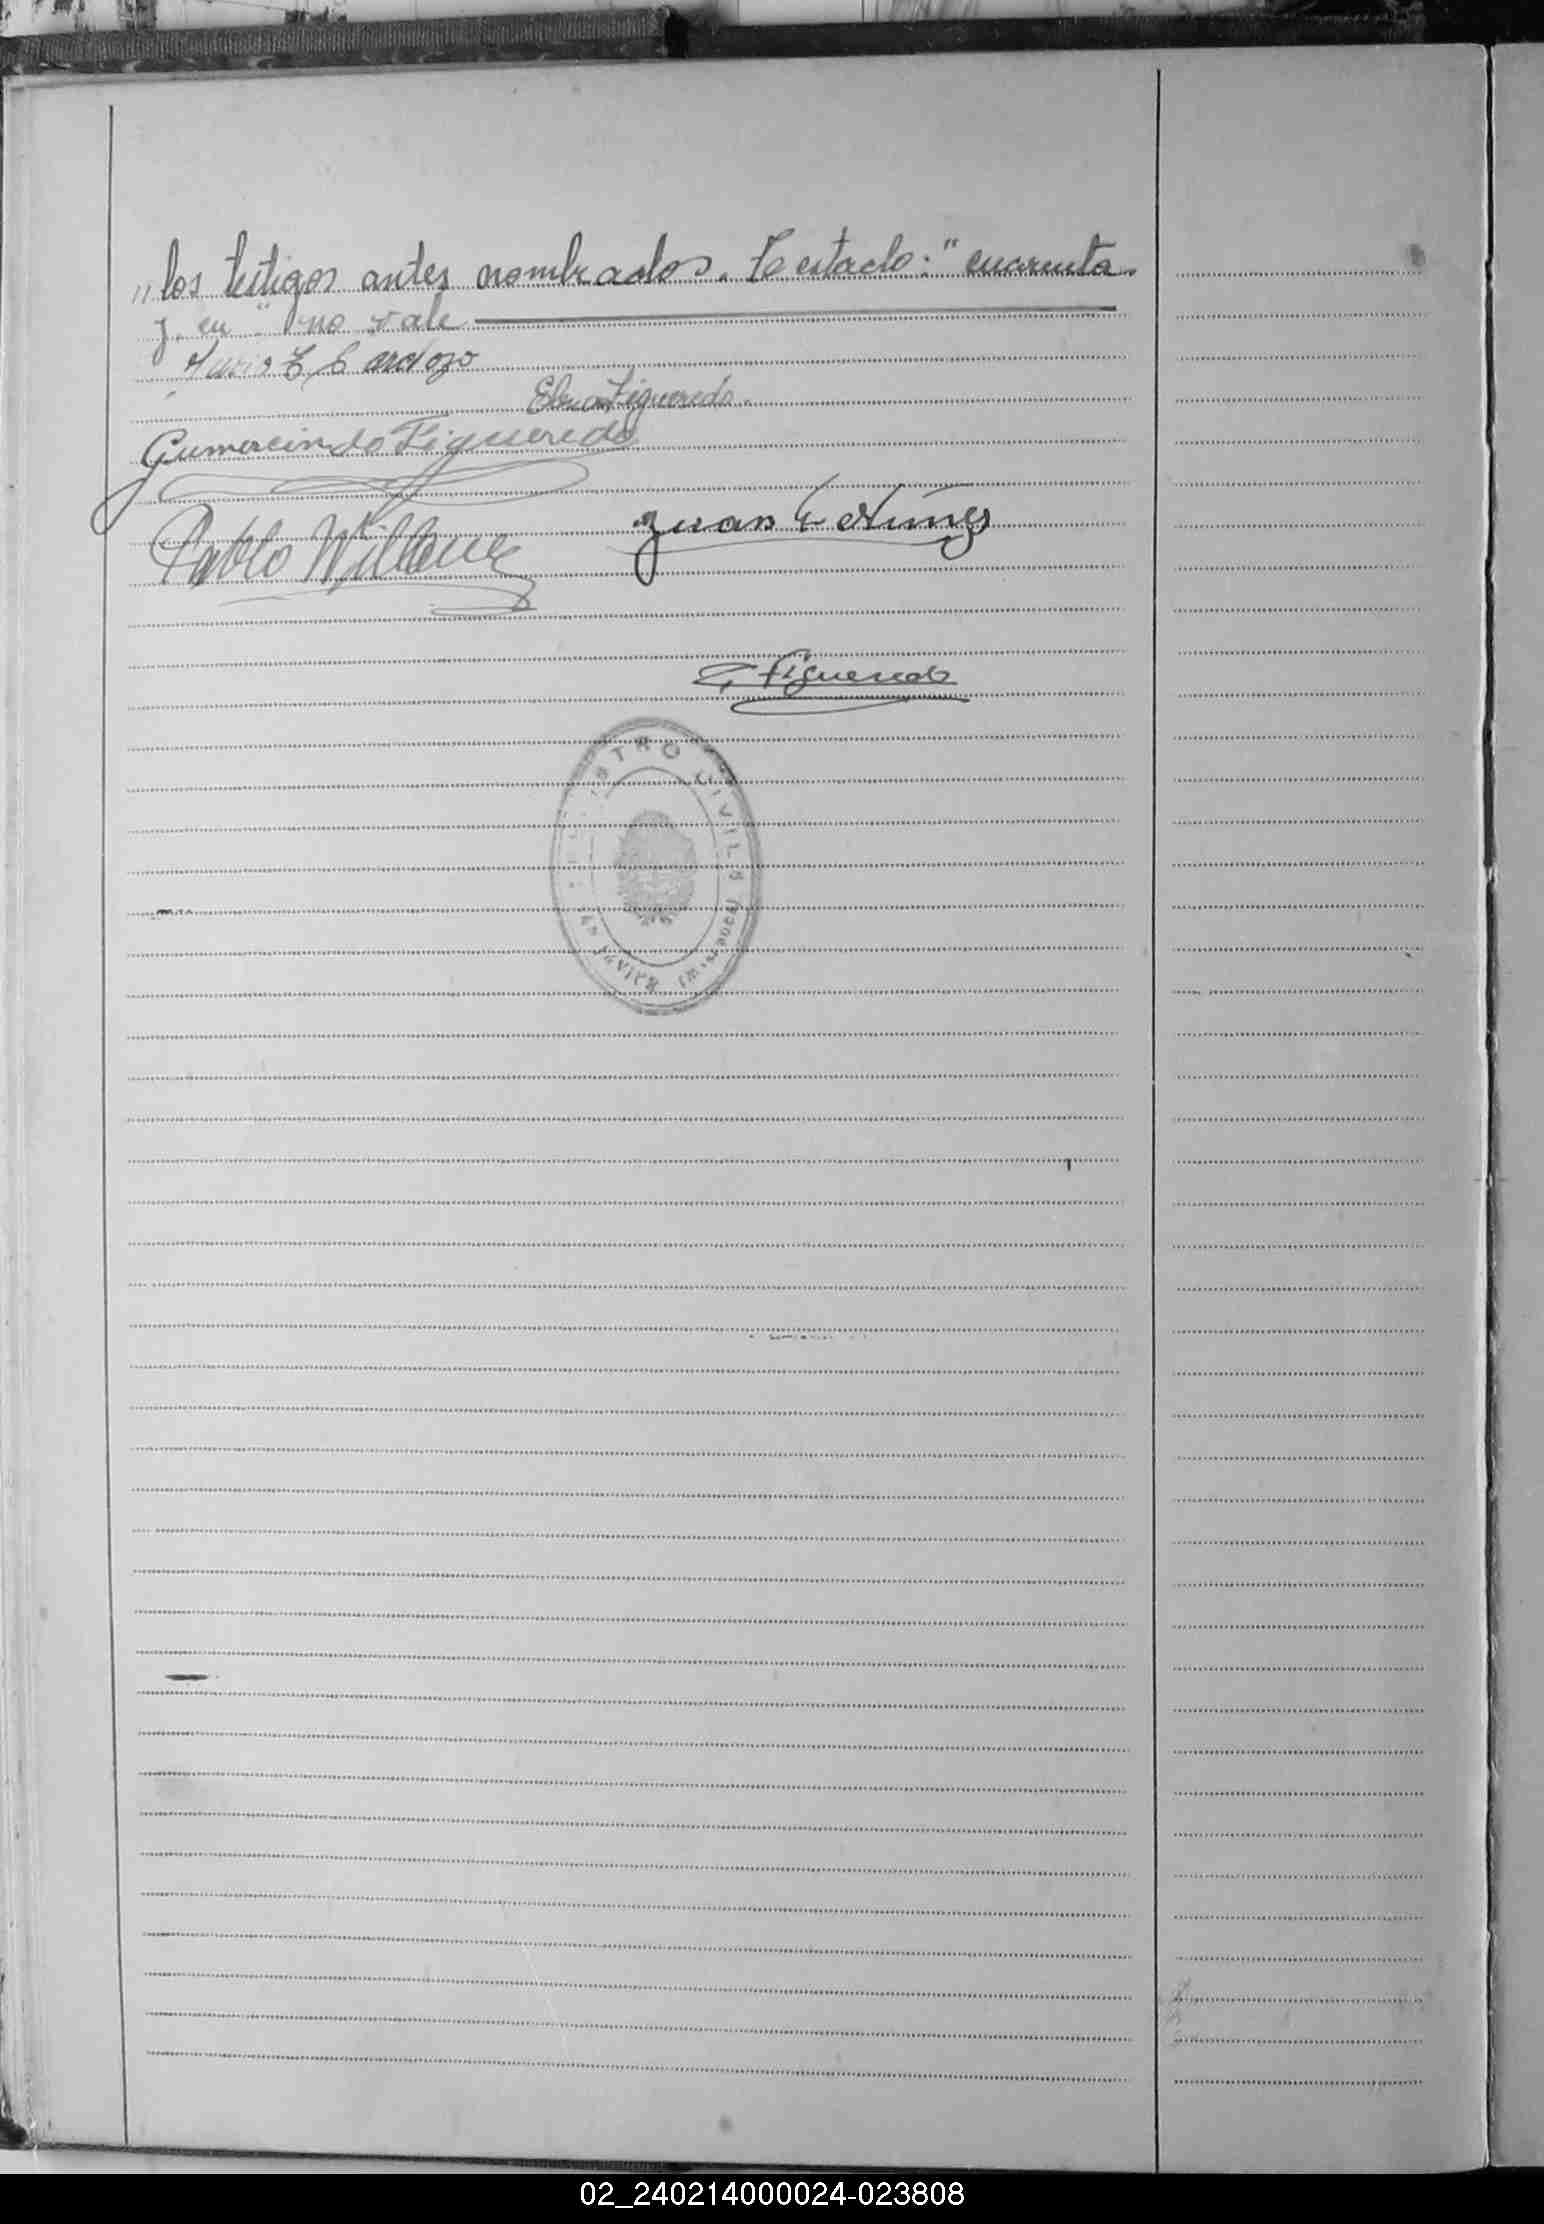 „los testigos antes nombrados. Testado: " cuarenta
y en " no vale
E. Cardozo
Elena Figueredo.
Gumercindo Figueredo
Pablo Villa
Juan E Nuñez
Figueredo
REGISTRO CIVIL
SAN JAVIER (Misiones)
02_240214000024-023808